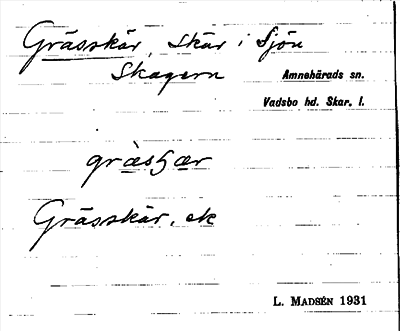 Grässkär, skär i Sjön
Skagern Amnehärads sn.
Vadsbo hd. Skar. l.
Grässkär, ek
L. MADSÉN 1931